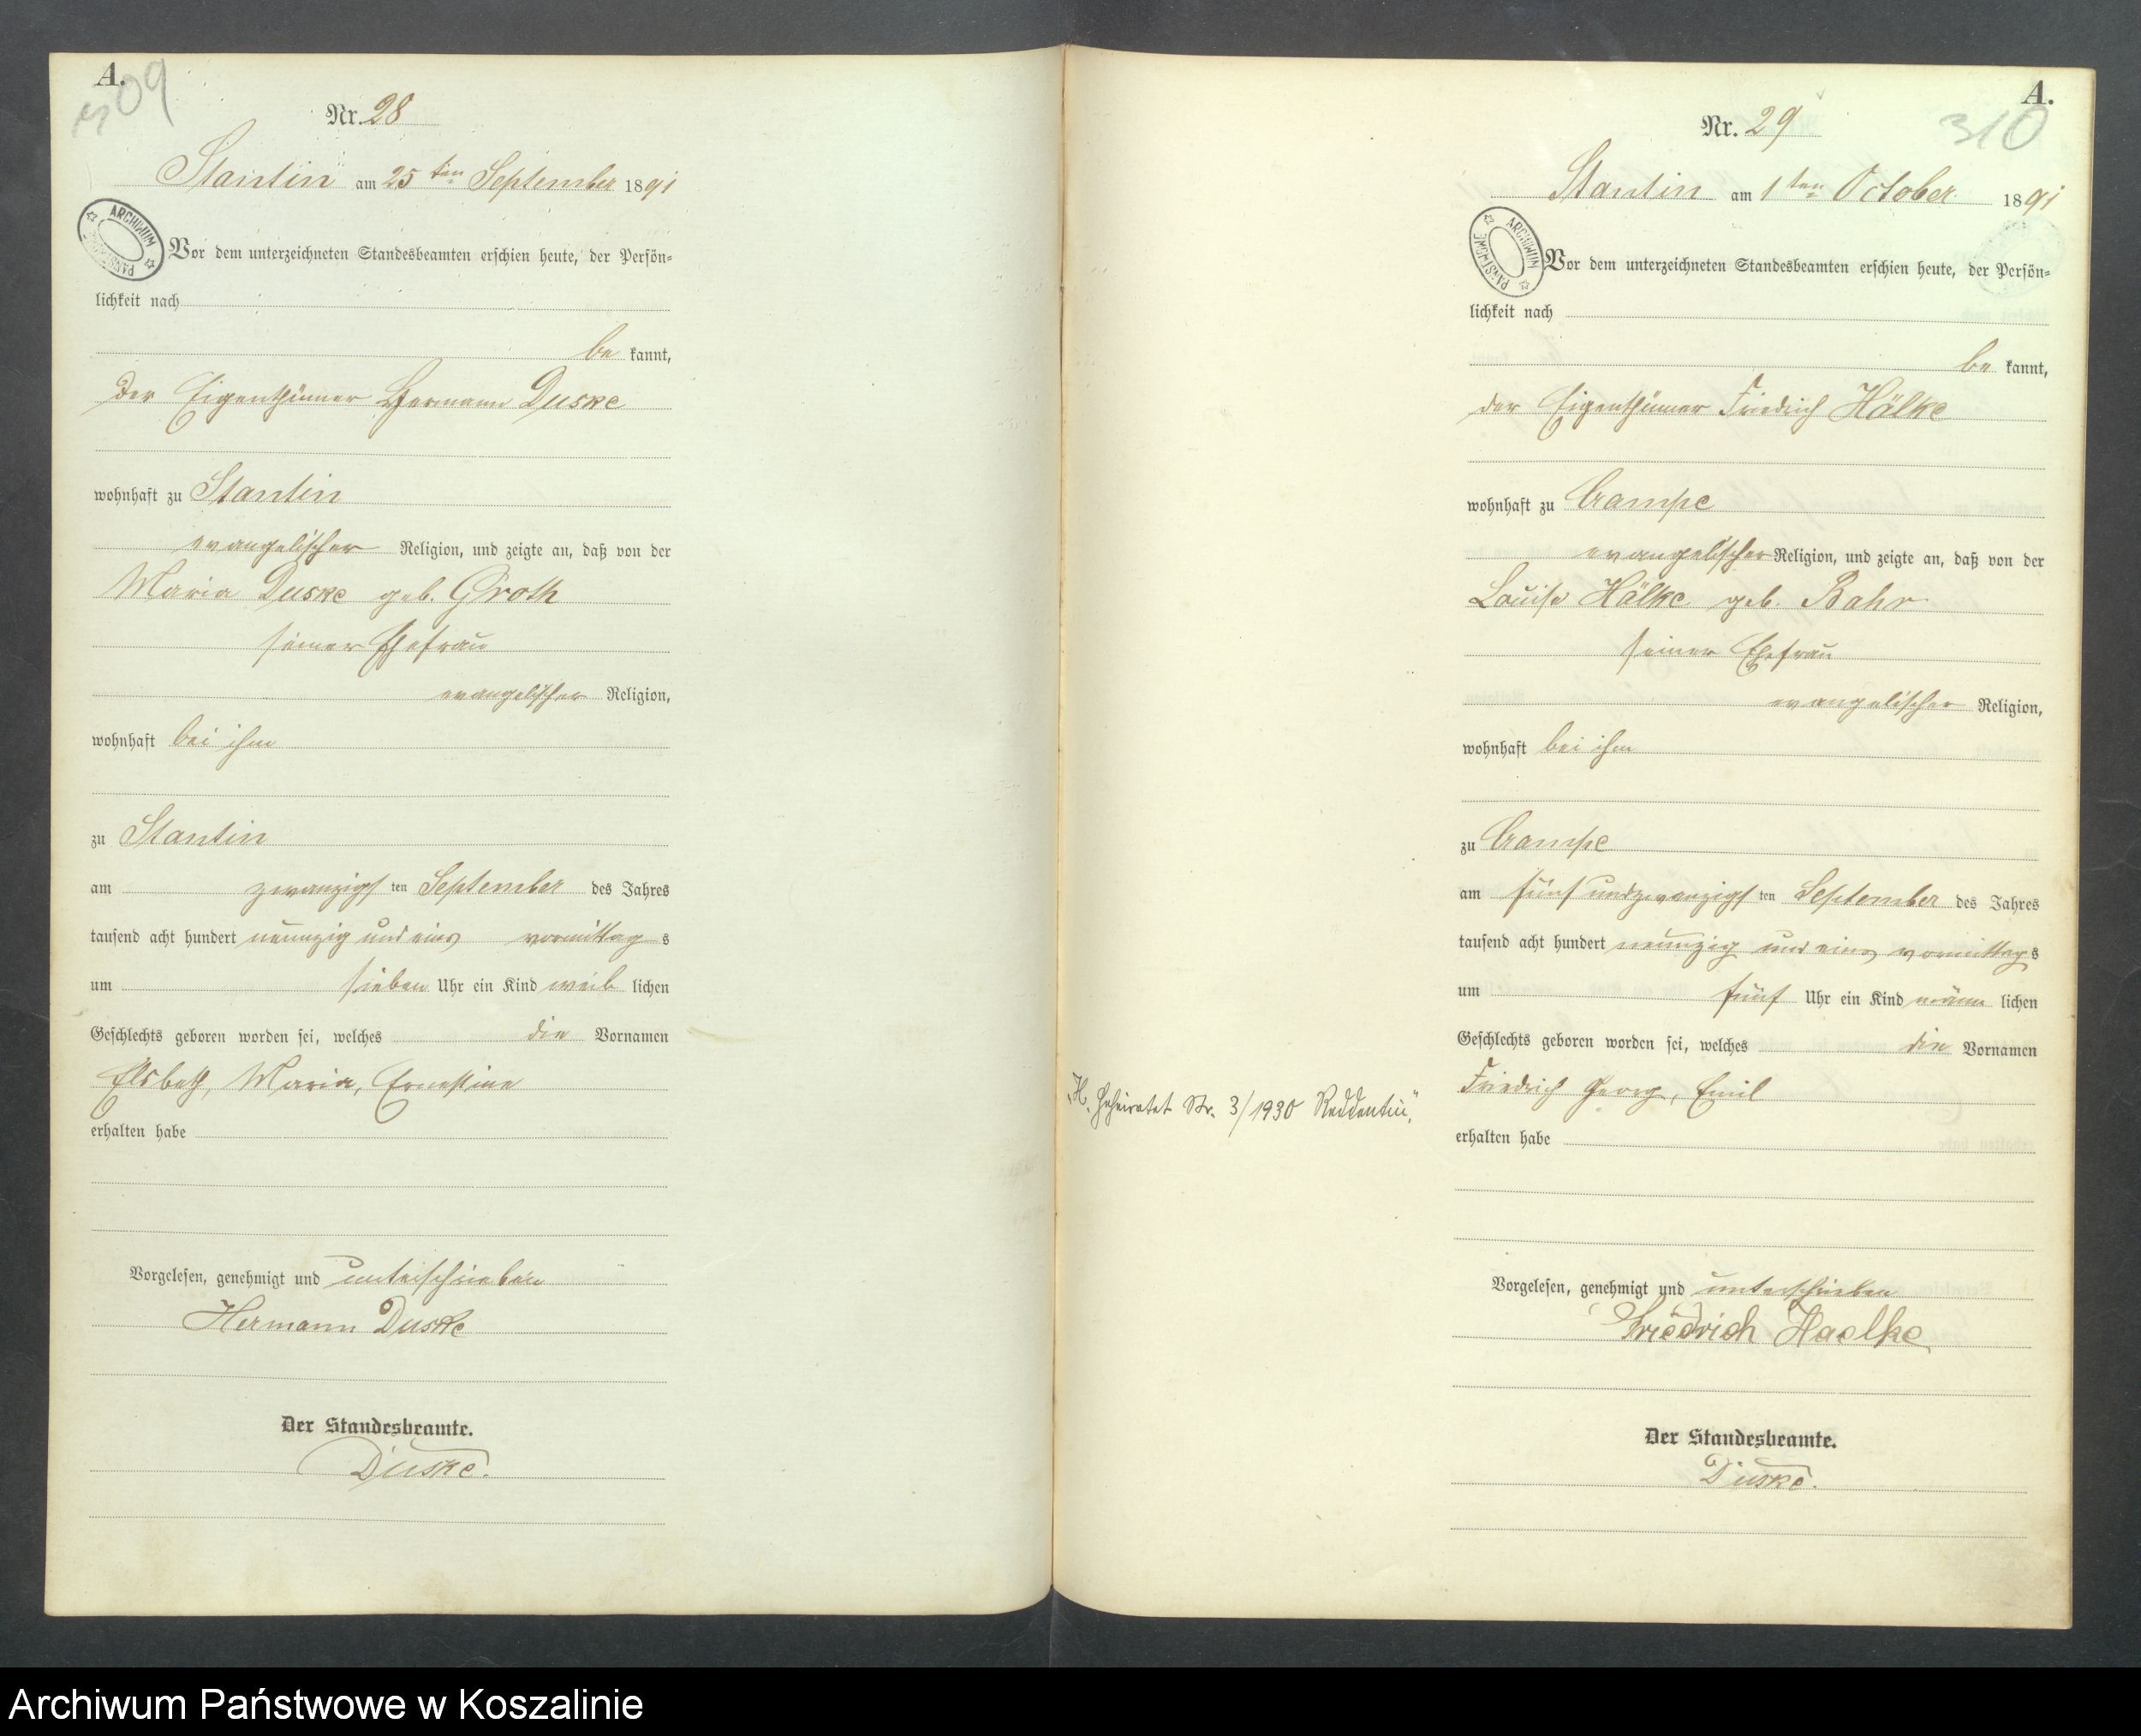 A.
309
Nr. 28
Stantin am 25 ten September 1891
ARCHIWUM PAŃSTWOWE
Vor dem unterzeichneten Standesbeamten erschien heute, der Persön=
lichkeit nach
be kannt,
der Eigenthümer Hermann Duske
wohnhaft zu Stantin
evangelischer Religion, und zeigte an, daß von der
Maria Duske geb. Groth
seiner Ehefrau
evangelischer Religion,
wohnhaft bei ihm
zu Stantin
am zwanzigsten September des Jahres
tausend acht hundert neunzig und eins vormittags
um sieben Uhr ein Kind weiblichen
Geschlechts geboren worden sei, welches die Vornamen
Elsbeth, Maria, Ernestine
erhalten habe
Vorgelesen, genehmigt und unterschrieben
Hermann Duske
Der Standesbeamte.
Duske.
A.
310
Nr. 29
Stantin am 1 ten October 1891
ARCHIWUM PAŃSTWOWE
Vor dem unterzeichneten Standesbeamten erschien heute, der Persön=
lichkeit nach
be kannt,
der Eigenthümer Friedrich Hälke
wohnhaft zu Gampe
evangelischer Religion, und zeigte an, daß von der
Louise Hälke geb. Bahr
seiner Ehefrau
evangelischer Religion,
wohnhaft bei ihm
zu Gampe
am fünfundzwanzigsten September des Jahres
tausend acht hundert neunzig und eins vormittags
um fünf Uhr ein Kind männlichen
Geschlechts geboren worden sei, welches die Vornamen
Friedrich Georg, Emil
erhalten habe
„H. Geheiratet Nr. 3/1930 Reddentin."
Vorgelesen, genehmigt und unterschrieben
Friedrich Haelke
Der Standesbeamte.
Duske.
Archiwum Państwowe w Koszalinie